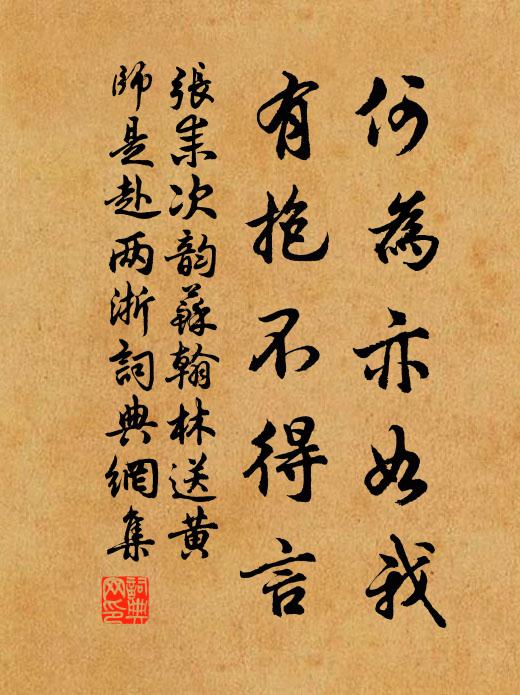 何為亦如我
有抱不得言
張耒次韵蘇翰林送黄
師是赴两浙詞典網集
詞典
网印